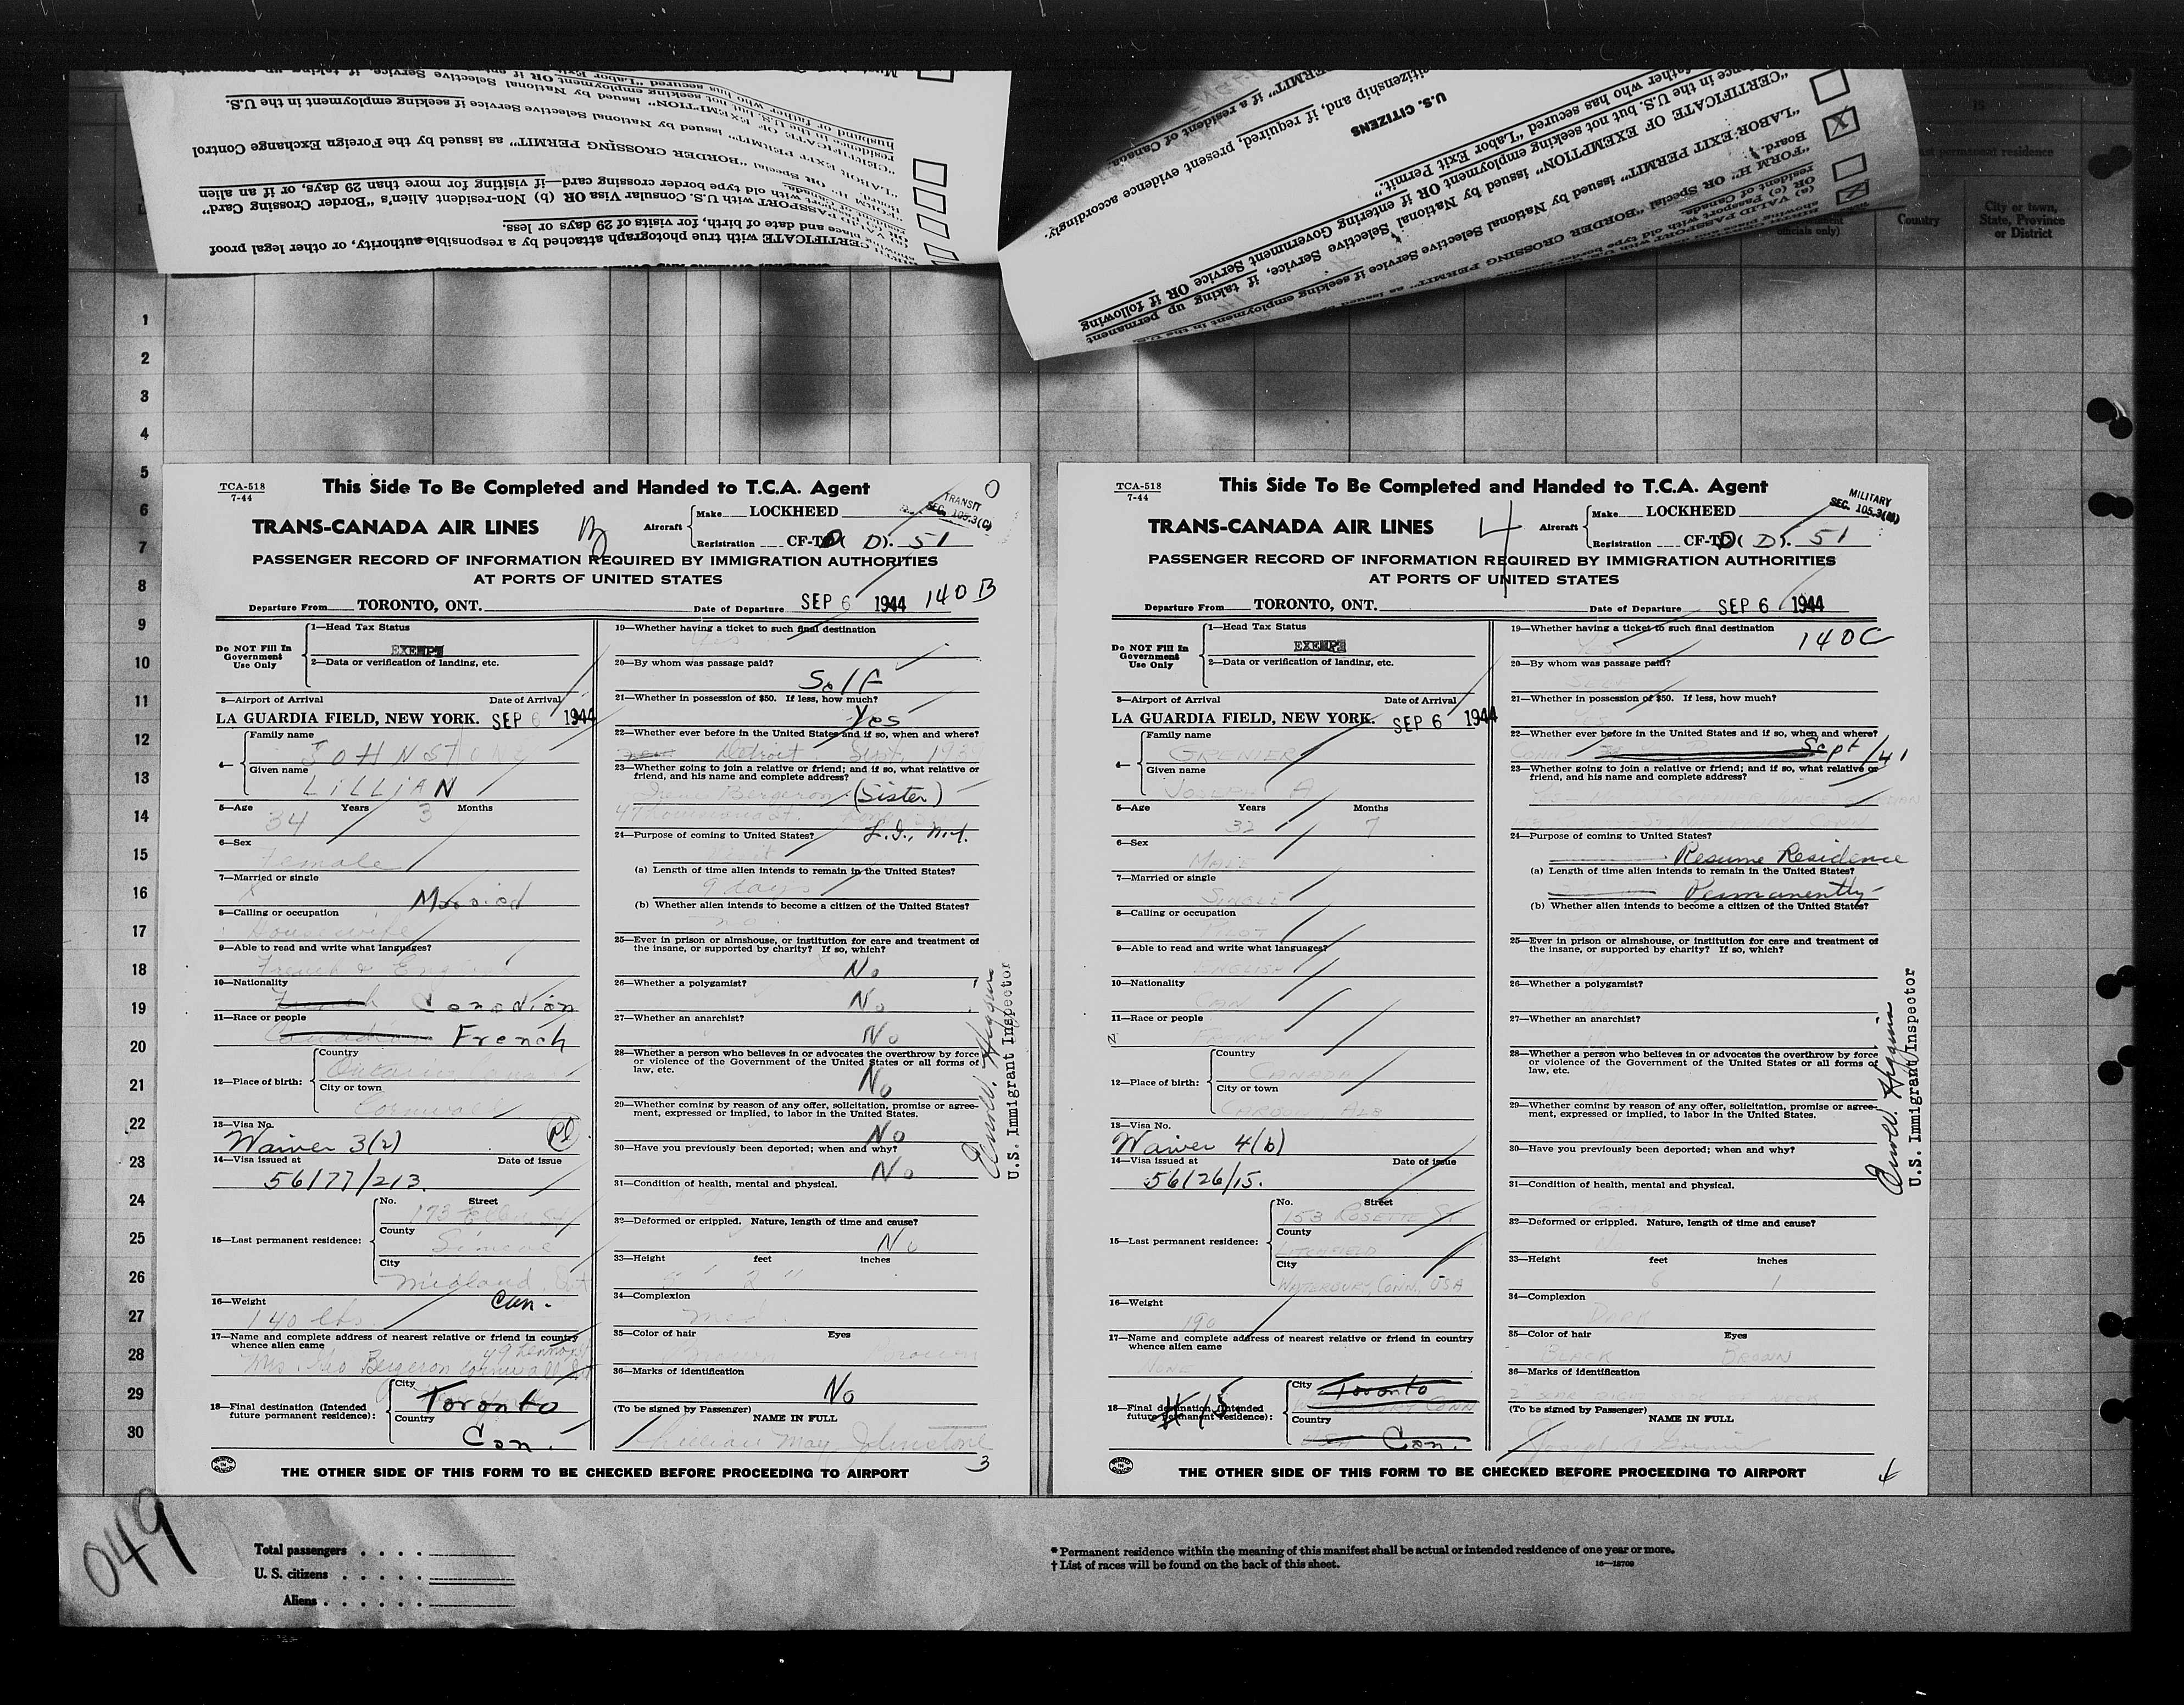 CERTIFICATE with true photograph attached by a responsible authority, or other legal proof
place and date of birth, for visits of 29 days or less.
PASSPORT with U.S. Consular Visa OR (b) Non-resident Alien's "Border Crossing Card"
with old type border crossing card—if visiting for more than 29 days, or if an alien
"H" OR Special "BORDER CROSSING PERMIT" as issued by the Foreign Exchange Control
"LABOR EXIT PERMIT" issued by National Selective Service if seeking employment in the U.S.
U.S. CITIZENS
citizenship and, if required, present evidence accordingly.
"FORM "H" OR Special "BORDER CROSSING PERMIT" as issued
Board.
"LABOR EXIT PERMIT" issued by National Selective Service if seeking employment in the U.S.
"CERTIFICATE OF EXEMPTION" issued by National Selective Service, if taking up permanent
in the U.S. but not seeking employment OR if entering Government Service OR if following
father who has secured "Labor Exit Permit."
permanent residence
Country
City or town,
State, Province
or District
officials only)
1
2
3
4
5
6
7
8
9
10
11
12
13
14
15
16
17
18
19
20
21
22
23
24
25
26
27
28
29
30
TCA-518
7-44
This Side To Be Completed and Handed to T.C.A. Agent
TRANSIT
SEC. 105.3(C)
TRANS-CANADA AIR LINES
Aircraft
Make LOCKHEED
Registration CF-T D). 51
PASSENGER RECORD OF INFORMATION REQUIRED BY IMMIGRATION AUTHORITIES
AT PORTS OF UNITED STATES
Departure From TORONTO, ONT.
Date of Departure SEP 6 1944 140 B
Do NOT Fill In
Government
Use Only
1—Head Tax Status
EXEMPT
2—Data or verification of landing, etc.
3—Airport of Arrival Date of Arrival
LA GUARDIA FIELD, NEW YORK. SEP 6 1944
4—
Family name
JOHNSTONE
Given name
LILLIAN
5—Age Years Months
34 3
6—Sex
Female
7—Married or single
Married
8—Calling or occupation
Housewife
9—Able to read and write what languages?
French & English
10—Nationality
French Canadian
11—Race or people
Canadian French
12—Place of birth:
Country
Ontario
City or town
Cornwall
13—Visa No.
Waiver 3(2)
14—Visa issued at Date of issue
56177/213.
15—Last permanent residence:
No. Street
173 Ellen St
County
Simcoe
City
Midland Ont
Can.
16—Weight
140 lbs.
17—Name and complete address of nearest relative or friend in country
whence alien came
Mrs. Bergeron Cornwall Ont
18—Final destination (Intended
future permanent residence):
City
Toronto
Country
Can.
19—Whether having a ticket to such final destination
Yes
20—By whom was passage paid?
Self
21—Whether in possession of $50. If less, how much?
Yes
22—Whether ever before in the United States and if so, when and where?
Detroit Sept.
23—Whether going to join a relative or friend; and if so, what relative or
friend, and his name and complete address?
Irene Bergeron (Sister)
47 Louisiana St.
L.I., N.Y.
24—Purpose of coming to United States?
Visit
(a) Length of time alien intends to remain in the United States?
9 days
(b) Whether alien intends to become a citizen of the United States?
no
25—Ever in prison or almshouse, or institution for care and treatment of
the insane, or supported by charity? If so, which?
No
26—Whether a polygamist?
No
27—Whether an anarchist?
No
28—Whether a person who believes in or advocates the overthrow by force
or violence of the Government of the United States or all forms of
law, etc.
No
29—Whether coming by reason of any offer, solicitation, promise or agree-
ment, expressed or implied, to labor in the United States.
No
30—Have you previously been deported; when and why?
No
31—Condition of health, mental and physical.
32—Deformed or crippled. Nature, length of time and cause?
No
33—Height feet inches
5' 2"
34—Complexion
Med.
35—Color of hair Eyes
Brown Brown
36—Marks of identification
No
(To be signed by Passenger) NAME IN FULL
Lillian May Johnstone
3
U.S. Immigrant Inspector
THE OTHER SIDE OF THIS FORM TO BE CHECKED BEFORE PROCEEDING TO AIRPORT
TCA-518
7-44
This Side To Be Completed and Handed to T.C.A. Agent
MILITARY
SEC. 105.3(M)
TRANS-CANADA AIR LINES
4
Aircraft
Make LOCKHEED
Registration CF-T D). 51
PASSENGER RECORD OF INFORMATION REQUIRED BY IMMIGRATION AUTHORITIES
AT PORTS OF UNITED STATES
Departure From TORONTO, ONT.
Date of Departure SEP 6 1944
140C
Do NOT Fill In
Government
Use Only
1—Head Tax Status
EXEMPT
2—Data or verification of landing, etc.
3—Airport of Arrival Date of Arrival
LA GUARDIA FIELD, NEW YORK. SEP 6 1944
4—
Family name
GRENIER
Given name
JOSEPH A
5—Age Years Months
32 7
6—Sex
MALE
7—Married or single
SINGLE
8—Calling or occupation
PILOT
9—Able to read and write what languages?
ENGLISH
10—Nationality
CAN
11—Race or people
FRENCH
12—Place of birth:
Country
CANADA
City or town
CARDON ALB
13—Visa No.
Waiver 4(b)
14—Visa issued at Date of issue
56126/15.
15—Last permanent residence:
No. Street
153 ROSETTE ST
County
LITCHFIELD
City
WATERBURY, CONN, USA
16—Weight
190
17—Name and complete address of nearest relative or friend in country
whence alien came
NONE
18—Final destination (Intended
future permanent residence):
# 15
City
Toronto
Country
USA Can.
19—Whether having a ticket to such final destination
20—By whom was passage paid?
SELF
21—Whether in possession of $50. If less, how much?
YES
22—Whether ever before in the United States and if so, when and where?
Sept/41
23—Whether going to join a relative or friend; and if so, what relative or
friend, and his name and complete address?
24—Purpose of coming to United States?
Resume Residence
(a) Length of time alien intends to remain in the United States?
Permanently
(b) Whether alien intends to become a citizen of the United States?
25—Ever in prison or almshouse, or institution for care and treatment of
the insane, or supported by charity? If so, which?
26—Whether a polygamist?
27—Whether an anarchist?
28—Whether a person who believes in or advocates the overthrow by force
or violence of the Government of the United States or all forms of
law, etc.
29—Whether coming by reason of any offer, solicitation, promise or agree-
ment, expressed or implied, to labor in the United States.
30—Have you previously been deported; when and why?
31—Condition of health, mental and physical.
32—Deformed or crippled. Nature, length of time and cause?
33—Height feet inches
6 1
34—Complexion
DARK
35—Color of hair Eyes
BLACK BROWN
36—Marks of identification
(To be signed by Passenger) NAME IN FULL
Joseph A Grenier
4
U.S. Immigrant Inspector
THE OTHER SIDE OF THIS FORM TO BE CHECKED BEFORE PROCEEDING TO AIRPORT
049
Total passengers
U. S. citizens
Aliens
* Permanent residence within the meaning of this manifest shall be actual or intended residence of one year or more.
† List of races will be found on the back of this sheet.
16—18709